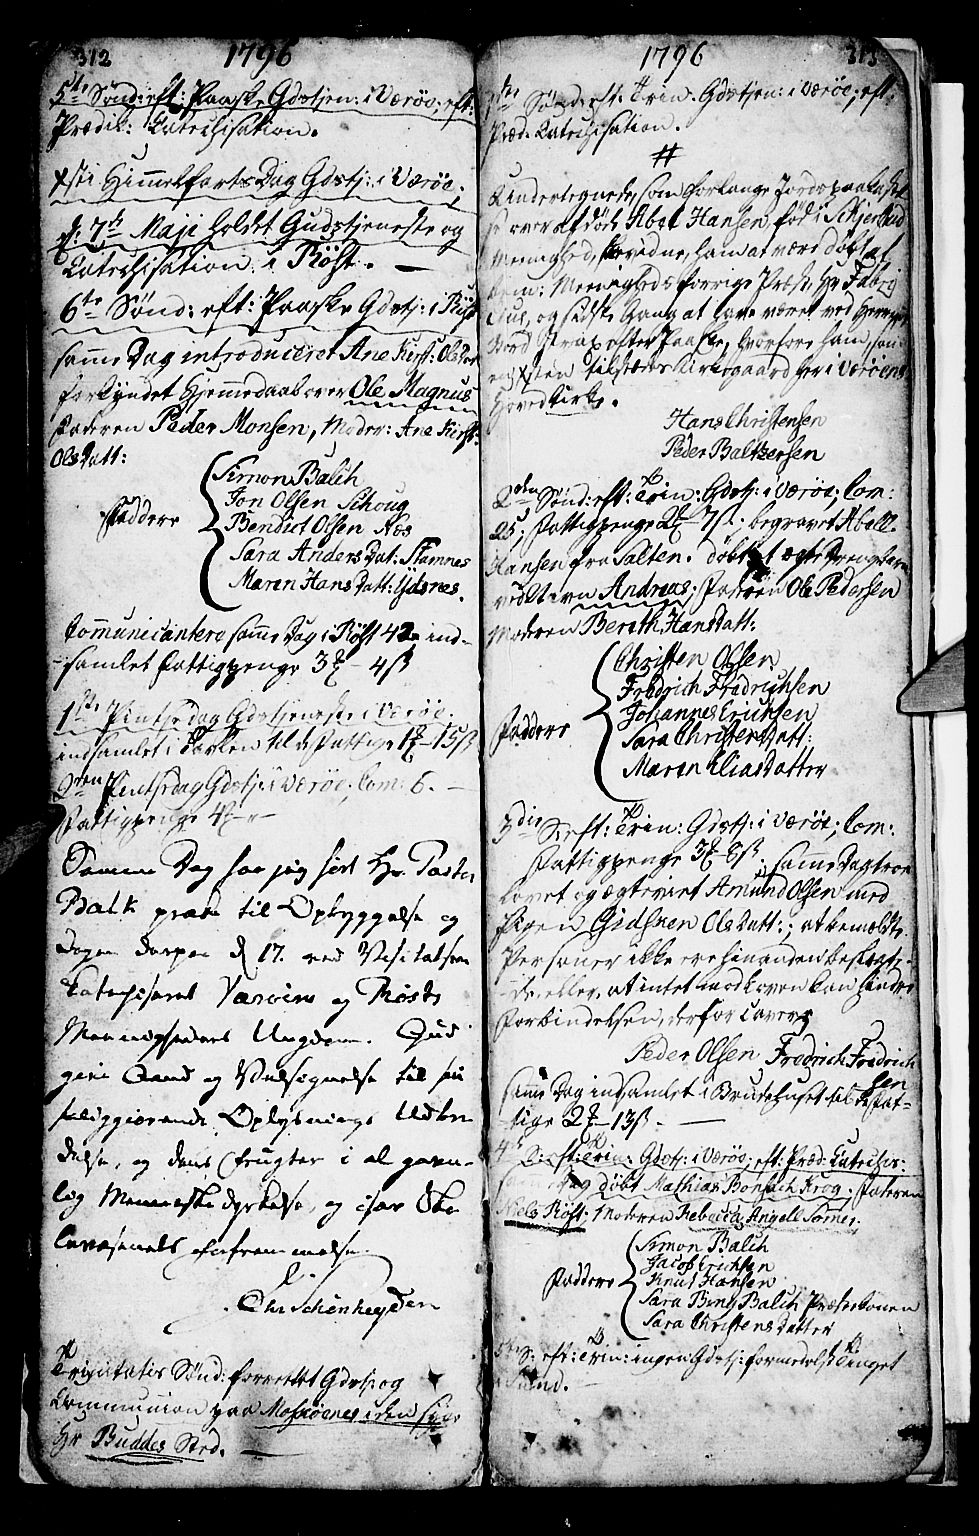 312
1796
5te Sønd: eft: Paaske Gdstjen: i Værøe, eft:
Prædik: Catechisation.
Xsti Himmelfarts Dag Gdstj: i Værøe,
d: 7de Maji holdet Gudstjeneste og
Catechisation i Røst. —
6te Sønd: eft: Paaske Gdstj: i Røst
samme Dag introduceret Ane Kirst: OlsDatt
forkyndet Hjemmedaab over Ole Magnus
Faderen Peder Monsen, Moder: Ane Kirst:
OlsDatt:
Faddere
Simon Balch
Jon Olsen Schoug
Bendict Olsen Nos
Sara AndersDat: Stamnes
Maren HansDatt: Ydsnes.
Communicantere samme Dag i Røst 42 ind-
samlet Fattigpenge 3 – 4 ß
1ste Pintsedag Gdstjeneste i Værøe
indsamlet i Kirken til de Fattige 1 – 15 ß
2den Pintsedag Gdstj: i Værøe, Com: 6. —
Fattigpenge 4
Samme Dag har jeg hørt Hr. Pastor
Balk præke til Opbyggelse og
Dagen derpaa d 17. ved Visitatsen
Catechiseret Værøens og Røsts
Menigheders Ungdom. Gud
give Aand og Velsignelse til sin
saliggiørende Oplysnings Udbre-
delse, og dens Frugter i al gavn-
lig Menneske dyrkelse, og især Sko-
levæsenets
Chr Schønheyder
Trinitatis Sønd: forrettet Gdst: og
Communion paa Moskenes
Hr Buddes Sted. —
1796
313
1ste Sønd: eft: Trin. Gdstjen: i Værøe, eft:
Præd. Catechisation.
#
Undertegnede, som forlange Jords paakastel-
se over afdøde Abel Hansen, fød i Schjerstad
Menighed, bevidne, ham at være døbt af
bem: Menigheds forrige Præst Hr Fabri-
cius, og sidste Gang at have været ved Herrens
Bord strax efter Paaske, hvorfore ham, som
en Xsten tilstædes Kirkegaard her i Værøens
Hoved Kirke.
Hans Christensen
Peder Baltzersen
2den Sønd: eft: Trin: Gdstj: i Værøe; Com:
25; Fattigpenge 2 – 7 ß. begravet Abell
Hansen fra Salten. døbt et ægte Drengebarn
ved Navn Andreas; Faderen Ole Pedersen
Moderen Bereth HansDatt:
Faddere
Christen Olsen
Fredrich Fredrichsen
Johannes Erichsen
Sara ChristensDatt:
Maren EliasDatter
3die S: eft: Trin: Gdstj: i Værøe; Com:
Fattigpenge 3 – 8 ß. samme Dag troe
lovet og ægteviet Amund Olsen med
Pigen Gidsken OlsDatt:; at bemeldte
Personer ikke ere hinanden beslægte-
de, eller, at intet mod Loven kan hindre
Forbindelsen, derfor caverer
Peder Olsen Fredrich Fredrich
sen
samme Dag indsamlet i Brudehuset til de Fat-
tige 2 – 13 ß. —
4de S: eft: Trin: Gdstj: i Værøe, eft: Præd: Catechis:
samme Dag døbt Mathias Bonsach Krog; Faderen
Niels Røst; Moderen Rebecca Angell Sørner.
Faddere
Simon Balch
Jacob Erichsen
Knut Hansen
Sara Bing Balch Præstekonen
Sara ChristensDatter
5te S: eft: Trin: ingen Gdstj: formedelst Tinget
i Sund. —